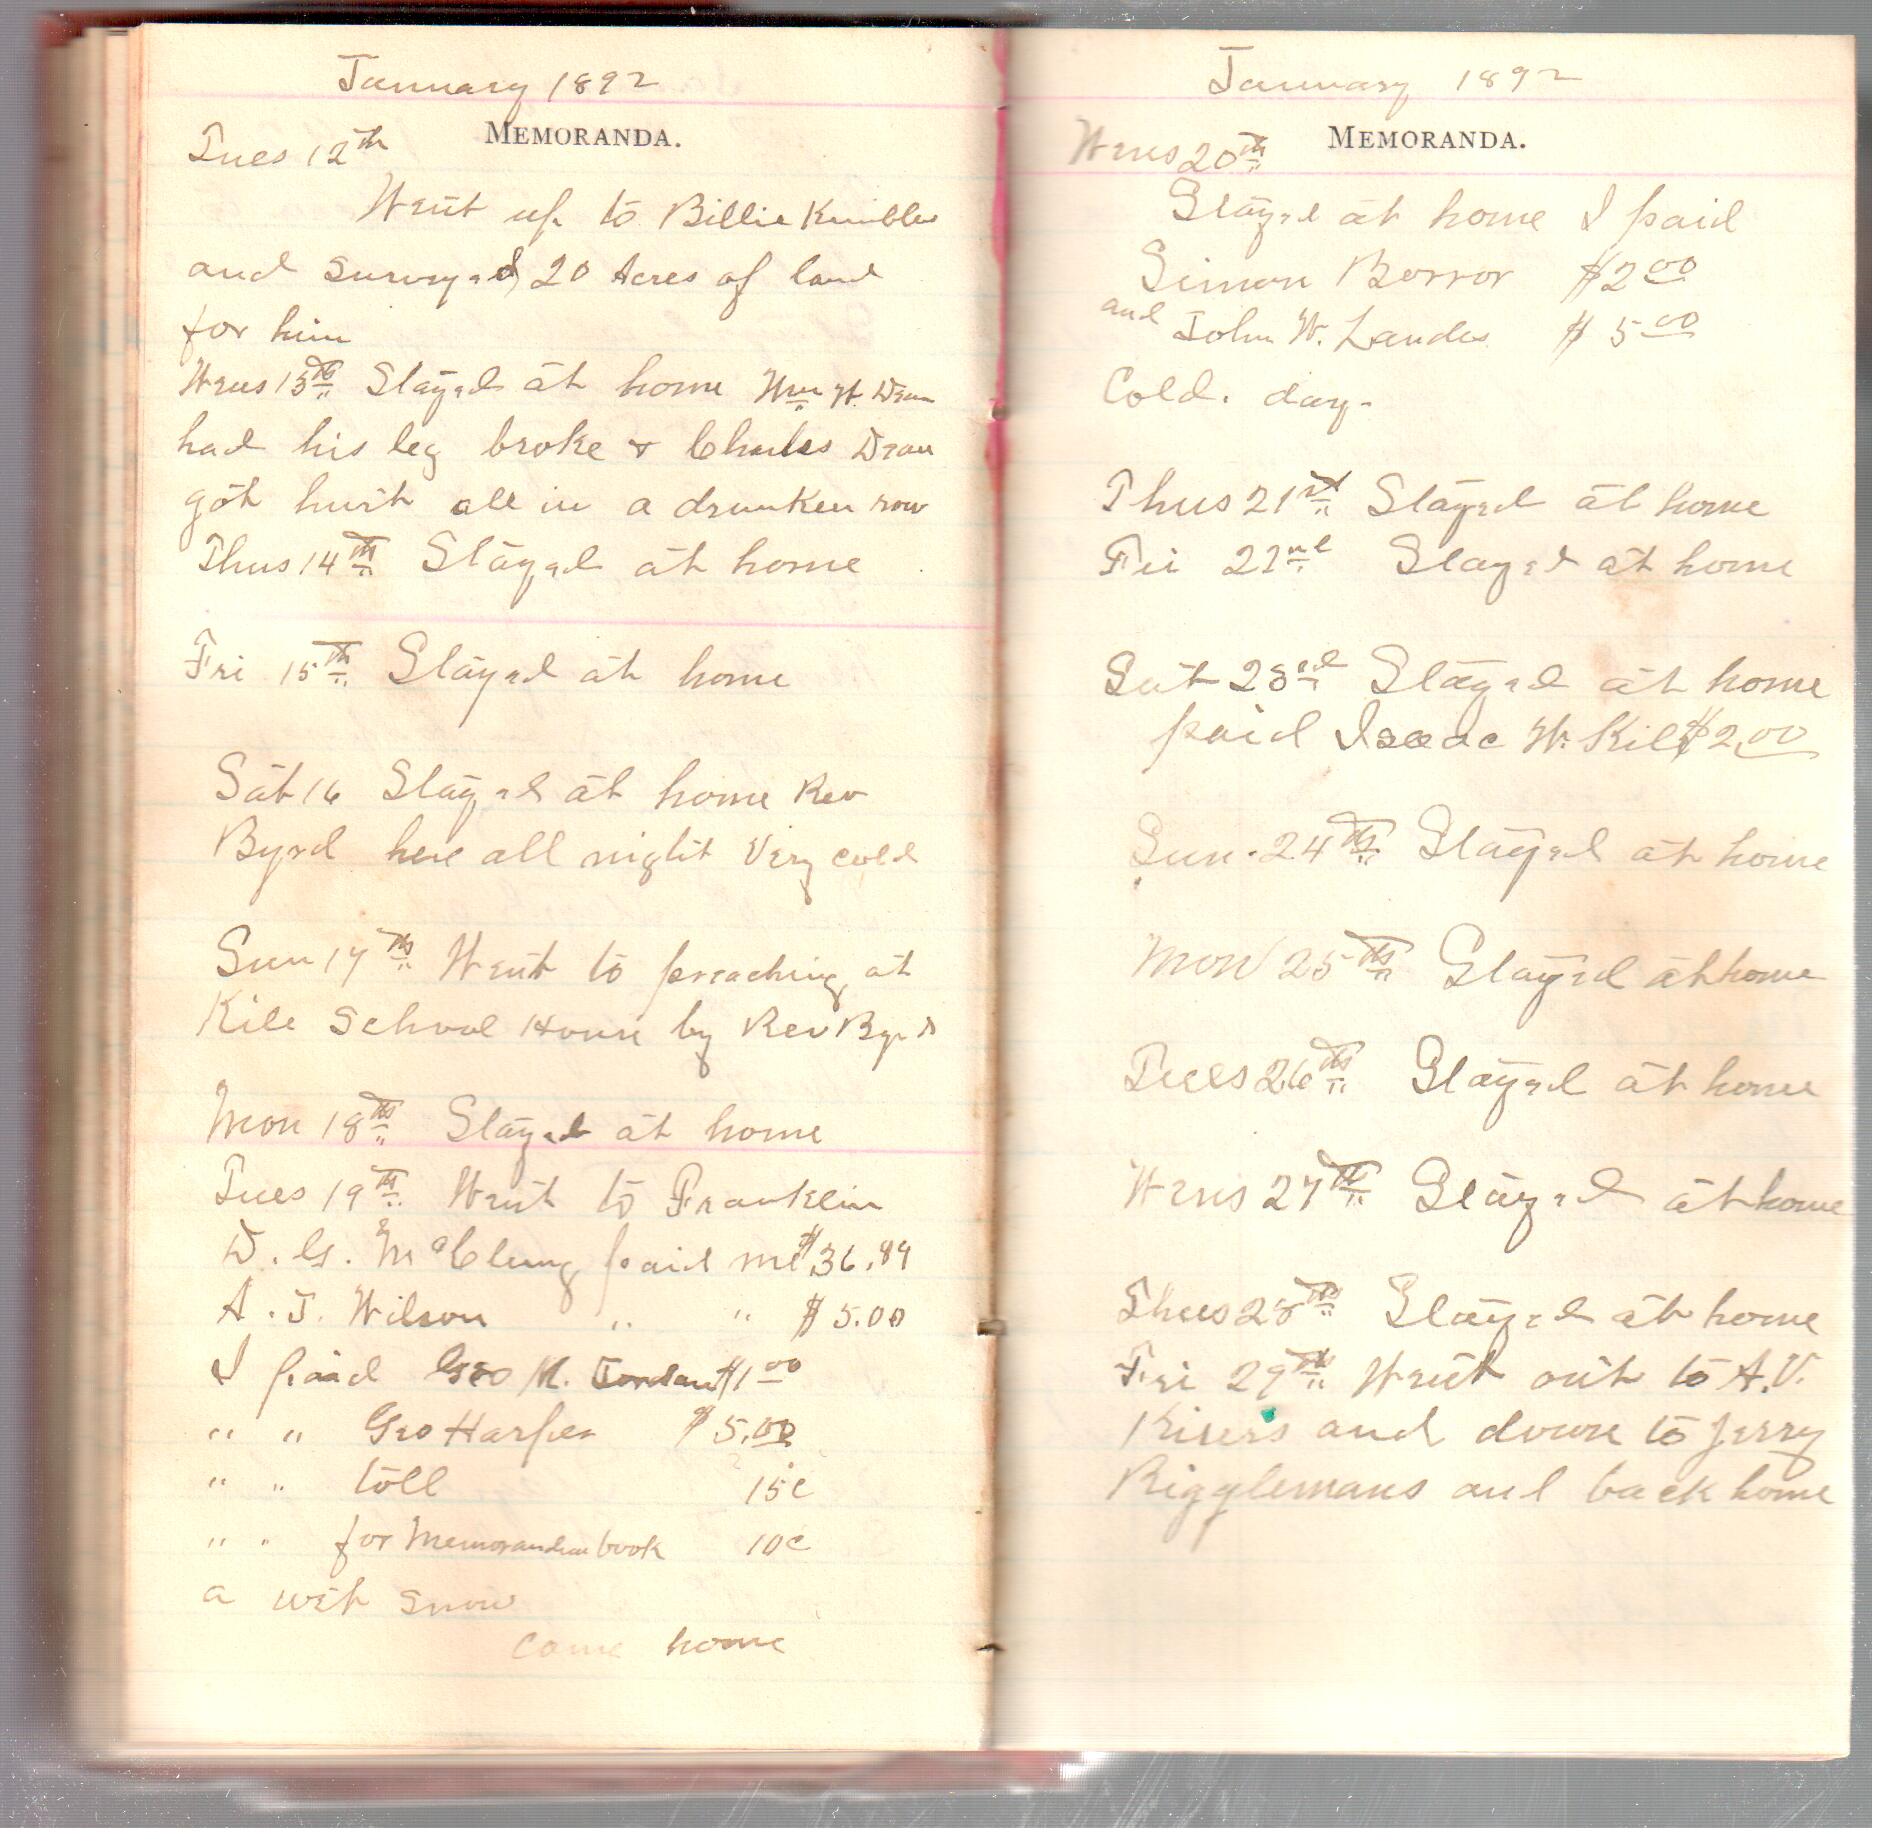 January 1892
MEMORANDA.
Tues 12th
Went up to Billie Kimbles
and surveyed 20 Acres of land
for him
Wens 13th Stayed at home Wm W. Dean
had his leg broke & Charles Dean
got hurt all in a drunken row
Thus 14th Stayed at home
Fri 15th Stayed at home
Sat 16 Stayed at home Rev
Byrd here all night Very cold
Sun 17th Went to preaching at
Kile School House by Rev Byrd
Mon 18th Stayed at home
Tues 19th Went to Franklin
D. G. McClung paid me $36.89
A. J. Wilson " " $5.00
I paid Geo M. Jordan $1 00
" " Geo Harper $5.00
" " toll 15c
" " for Memorandum book 10c
a wet snow
came home
January 1892
MEMORANDA.
Wens 20th
Stayed at home I paid
Simon Borror $2 00
and John W. Landes $5 00
Cold. day.
Thus 21st Stayed at home
Fri 22nd Stayed at home
Sat 23rd Stayed at home
paid Isaac W. Kile $2.00
Sun. 24th Stayed at home
Mon 25th Stayed at home
Tues 26th Stayed at home
Wens 27th Stayed at home
Thus 28th Stayed at home
Fri 29th Went out to A. V.
Kisers and down to Jerry
Rigglemans and back home